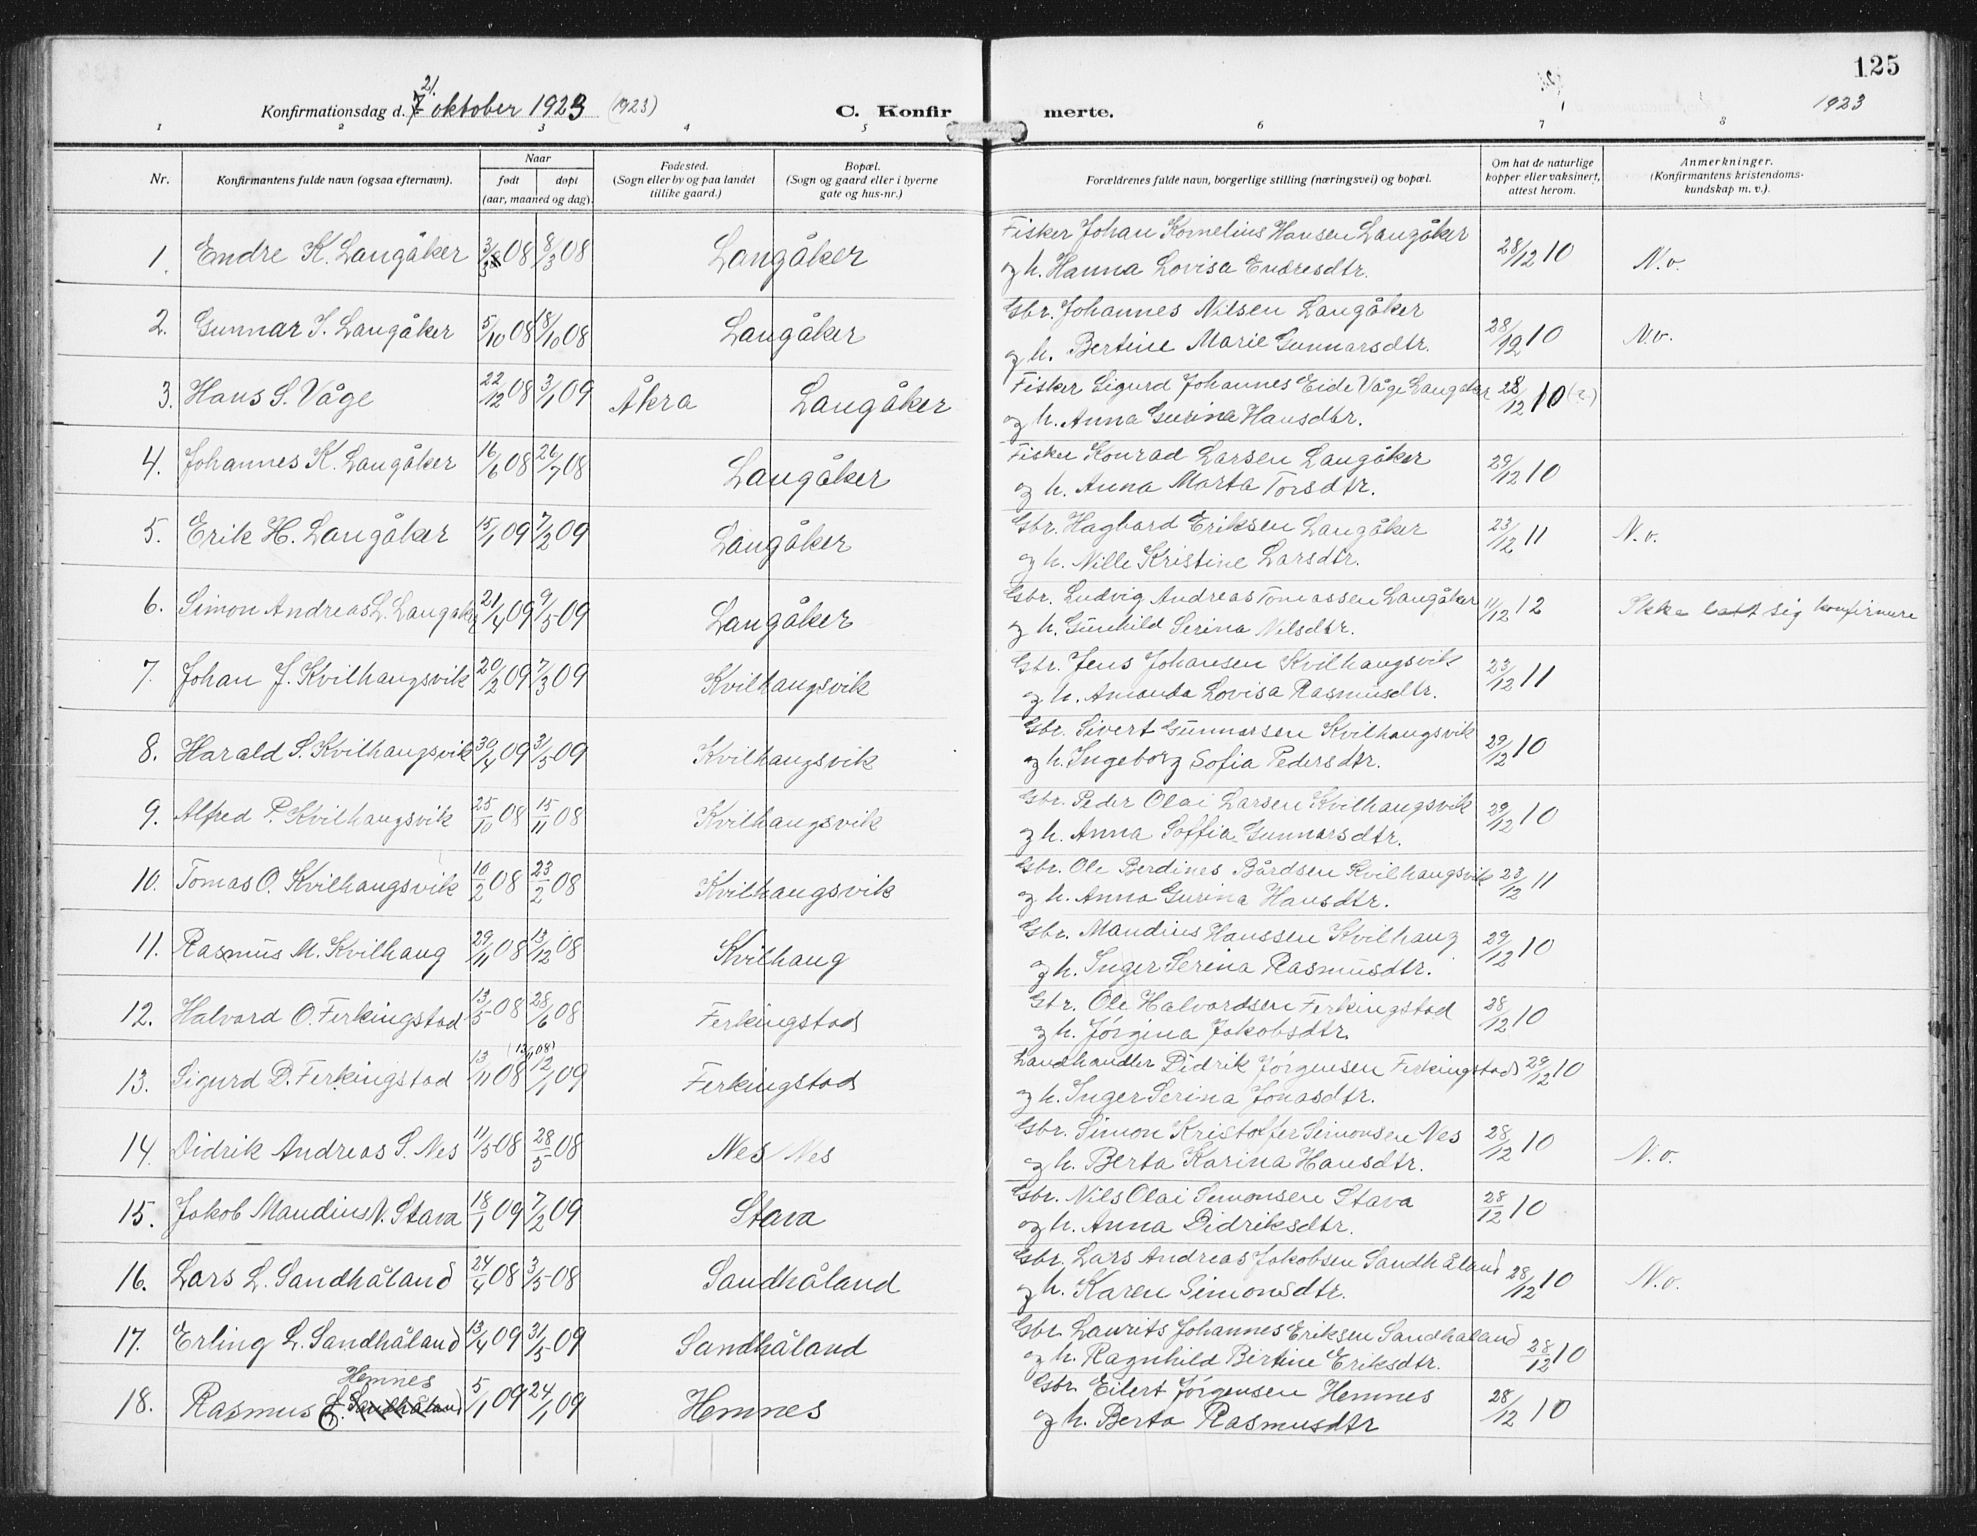 125
21.
Konfirmationsdag d. 7 oktober 1923 (1923) C. Konfirmerte. 1923
1 2 3 4 5 6 7 8
Nr. Konfirmantens fulde navn (ogsaa efternavn). Naar født døpt (aar, maaned og dag) Fødested. (Sogn eller by og paa landet tillike gaard.) Bopæl. (Sogn og gaard eller i byerne gate og hus-nr.) Forældrenes fulde navn, borgerlige stilling (næringsvei) og bopæl. Om hat de naturlige kopper eller vaksinert, attest herom. Anmerkninger. (Konfirmantens kristendomskundskap m. v.).
1. Endre K. Langåker 3/3 08 8/3 08 Langåker Fisker Johan Kornelius Hansen Langåker 28/12 10 N.v.
og h. Hanna Lovisa Endresdtr.
2. Gunnar J. Langåker 5/10 08 18/10 08 Langåker Gbr. Johannes Nilsen Langåker 28/12 10 N.v.
og h. Bertine Marie Gunnarsdtr.
3. Hans S. Våge 22/12 08 3/1 09 Åkra Langåker Fisker Sigurd Johannes Eide Våge Langåker 28/12 10 (?)
og h. Anna Gurina Hansdtr.
4. Johannes K. Langåker 16/6 08 26/7 08 Langåker Fisker Konrad Larsen Langåker 29/12 10
og h. Anna Marta Torsdtr.
5. Erik H. Langåker 15/1 09 7/2 09 Langåker Gbr. Hagbard Eriksen Langåker 23/12 11 N.v.
og h. Nille Kristine Larsdtr.
6. Simon Andreas L. Langåker 21/4 09 9/5 09 Langåker Gbr. Ludvig Andreas Tomassen Langåker 11/12 12 Ikke latt sig konfirmere
og h. Gunhild Serina Nilsdtr.
7. Johan J. Kvilhaugsvik 20/2 09 7/3 09 Kvilhaugsvik Gbr. Jens Johansen Kvilhaugsvik 23/12 11
og h. Amanda Lovisa Rasmusdtr.
8. Harald S. Kvilhaugsvik 30/4 09 31/5 09 Kvilhaugsvik Gbr. Sivert Gunnarsen Kvilhaugsvik 29/12 10
og h. Ingeborg Sofia Pedersdtr.
9. Alfred P. Kvilhaugsvik 25/10 08 15/11 08 Kvilhaugsvik Gbr. Peder Olai Larsen Kvilhaugsvik 29/12 10
og h. Anna Soffia Gunnarsdtr.
10. Tomas O. Kvilhaugsvik 10/2 08 23/2 08 Kvilhaugsvik Gbr. Ole Berdines Bårdsen Kvilhaugsvik 23/12 11
og h. Anna Gurina Hansdtr.
11. Rasmus M. Kvilhaug 29/11 08 13/12 08 Kvilhaug Gbr. Mandius Hanssen Kvilhaug 29/12 10
og h. Inger Serina Rasmusdtr.
12. Halvard O. Ferkingstad 13/5 08 28/6 08 Ferkingstad Gbr. Ole Halvardsen Ferkingstad 28/12 10
og h. Jørgina Jakobsdtr.
13. Sigurd D. Ferkingstad 13/11 08 (13/11 08) 12/1 09 Ferkingstad Landhandler Didrik Jørgensen Ferkingstad 29/12 10
og h. Inger Serina Jonasdtr.
14. Didrik Andreas S. Nes 11/5 08 28/5 08 Nes / Nes Gbr. Simon Kristoffer Simonsen Nes 28/12 10 N.v.
og h. Berta Karina Hansdtr.
15. Jakob Mandius N. Stava 18/1 09 7/2 09 Stava Gbr. Nils Olai Simonsen Stava 28/12 10
og h. Anna Didriksdtr.
16. Lars L. Sandhåland 24/4 08 3/5 08 Sandhåland Gbr. Lars Andreas Jakobsen Sandhåland 28/12 10 N.v.
og h. Karen Simonsdtr.
17. Erling L. Sandhåland 13/4 09 31/5 09 Sandhåland Gbr. Laurits Johannes Eriksen Sandhåland 28/12 10
og h. Ragnhild Bertine Eriksdtr.
Hemnes
18. Rasmus E. Sandhåland 5/1 09 24/1 09 Hemnes Gbr. Eilert Jørgensen Hemnes 28/12 10
og h. Berta Rasmusdtr